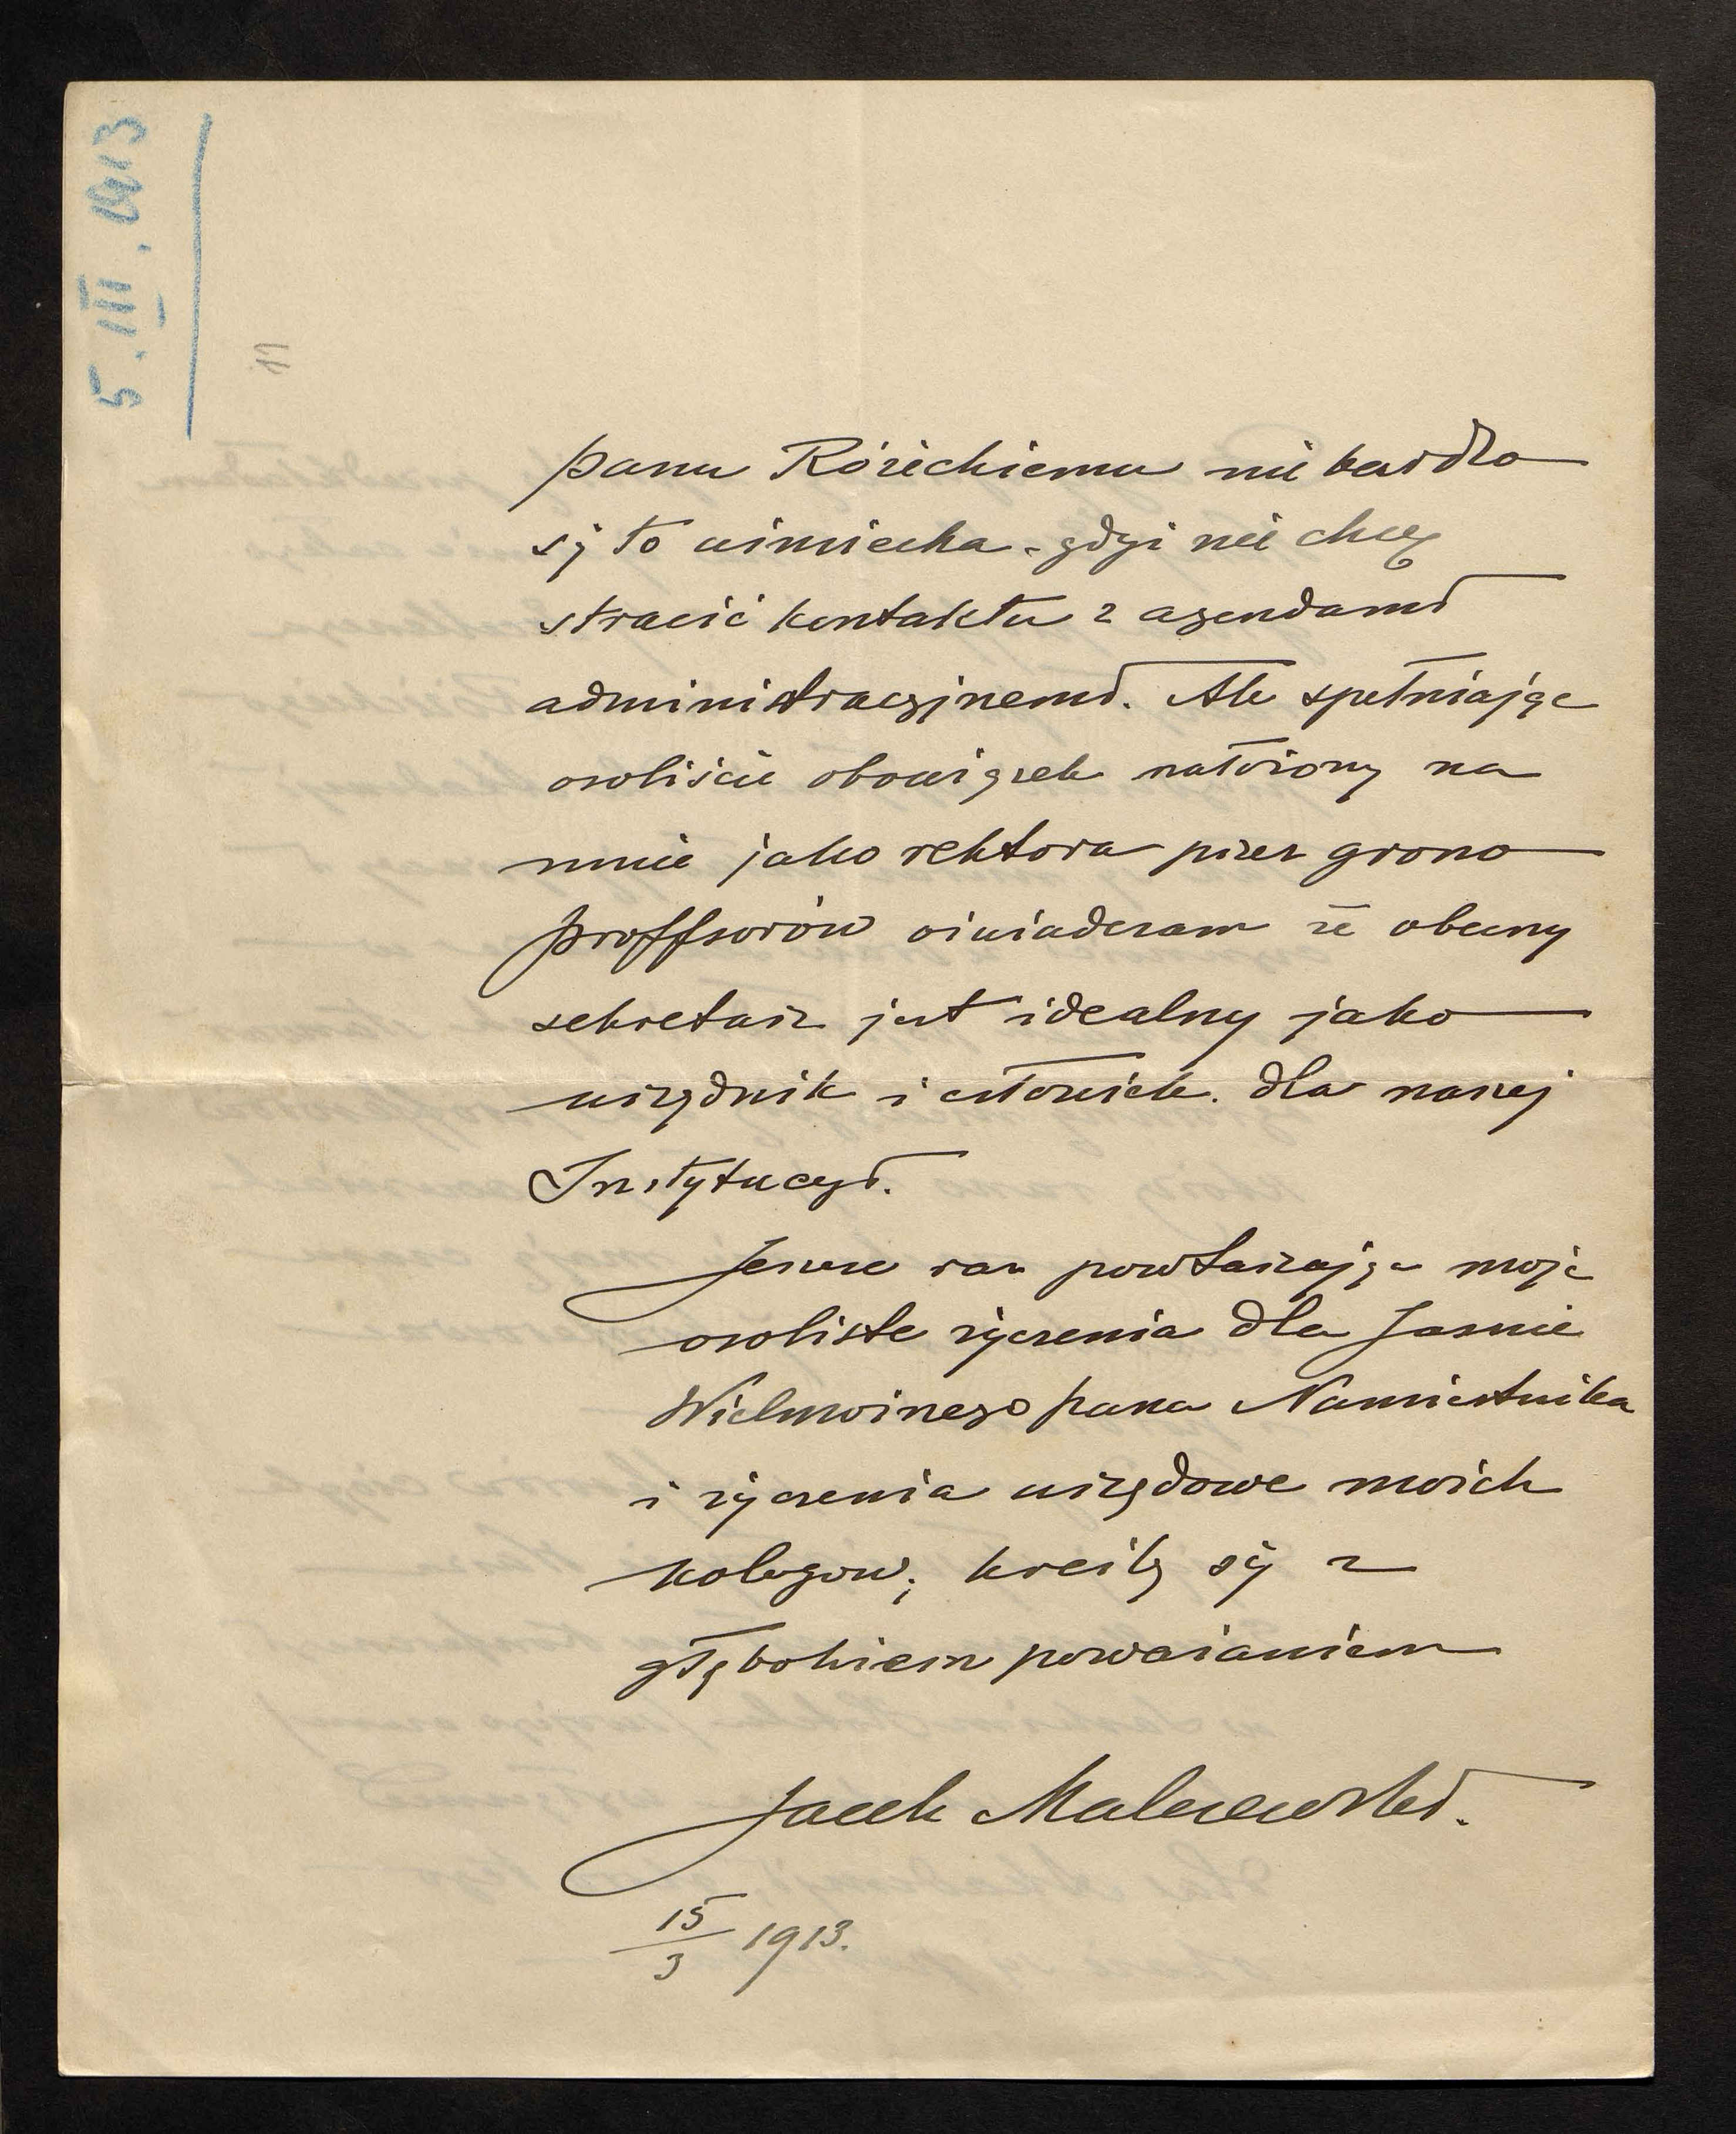 5.III.1913
11
panu Różickiemu nie bardzo
się to uśmiecha - gdyż nie chcę
stracić kontaktu z agendami
administracyjnemi. Ale spełniając
osobiście obowiązek nałożony na
mnie jako rektora przez grono
proffsorów oświadczam że obecny
sekretarz jest idealny jako
urzędnik i człowiek. dla naszej
Instytucyi.
Jeszcze raz powtarzając moje
osobiste życzenia dla Jaśnie
Wielmożnego pana Namiestnika
i życzenia urzędowe moich
kolegów; kreślę się z
głębokiem poważaniem
Jacek Malczewski.
15/3 1913.